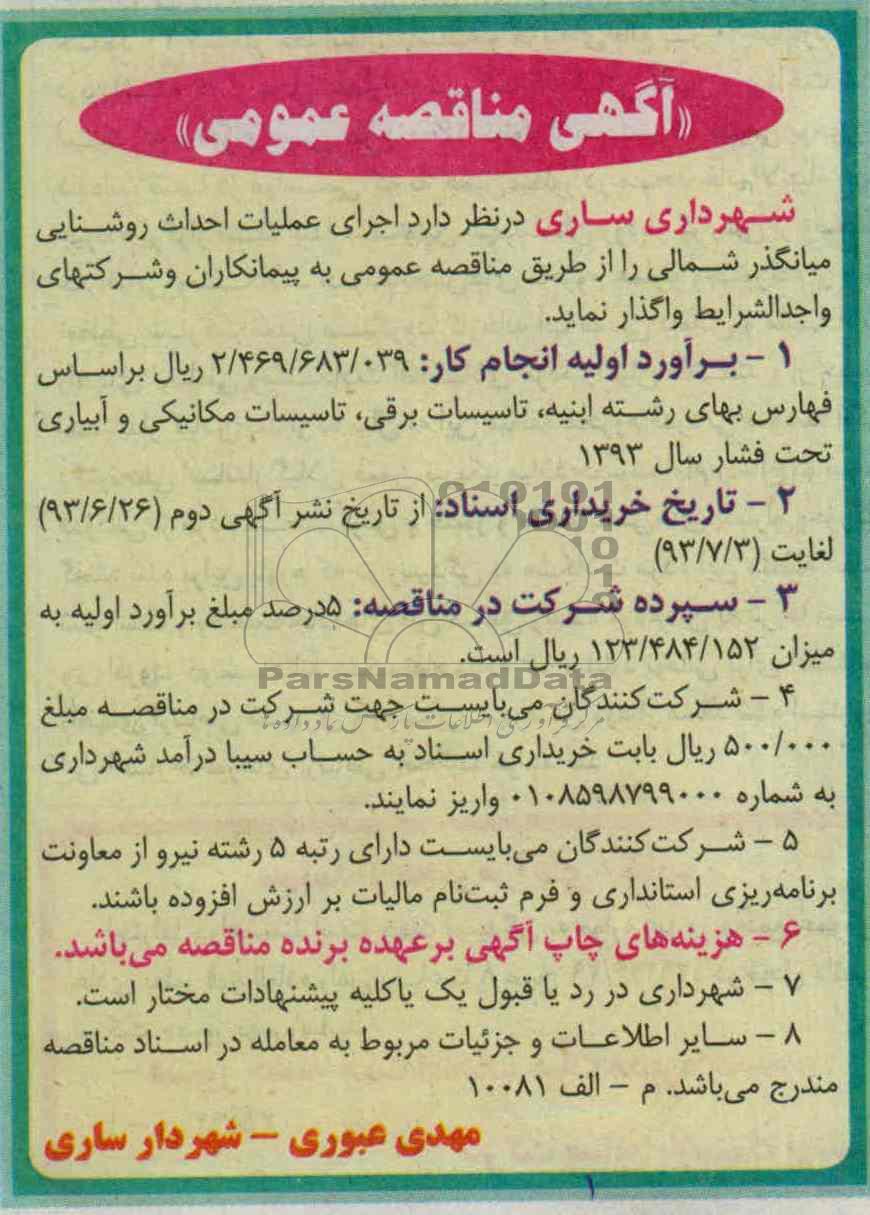 «آگهی مناقصه عمومی»
شهرداری ساری درنظر دارد اجرای عملیات احداث روشنایی
میانگذر شمالی را از طریق مناقصه عمومی به پیمانکاران وشرکتهای
واجدالشرایط واگذار نماید.
۱ - برآورد اولیه انجام کار: ۲/۴۶۹/۶۸۳/۰۳۹ ریال براساس
فهارس بهای رشته ابنیه، تاسیسات برقی، تاسیسات مکانیکی و آبیاری
تحت فشار سال ۱۳۹۳
۲ - تاریخ خریداری اسناد: از تاریخ نشر آگهی دوم (۹۳/۶/۲۶)
لغایت (۹۳/۷/۳)
۳ - سپرده شرکت در مناقصه: ۵درصد مبلغ برآورد اولیه به
میزان ۱۲۳/۴۸۴/۱۵۲ ریال است.
ParsNamadData
۴ - شرکت‌کنندگان می‌بایست جهت شرکت در مناقصه مبلغ
مرکز فرآوری اطلاعات پارس نماد داده‌ها
۵۰۰/۰۰۰ ریال بابت خریداری اسناد به حساب سیبا درآمد شهرداری
به شماره ۰۱۰۸۵۹۸۷۹۹۰۰۰ واریز نمایند.
۵ - شرکت‌کنندگان می‌بایست دارای رتبه ۵ رشته نیرو از معاونت
برنامه‌ریزی استانداری و فرم ثبت‌نام مالیات بر ارزش افزوده باشند.
۶ - هزینه‌های چاپ آگهی برعهده برنده مناقصه می‌باشد.
۷ - شهرداری در رد یا قبول یک یاکلیه پیشنهادات مختار است.
۸ - سایر اطلاعات و جزئیات مربوط به معامله در اسناد مناقصه
مندرج می‌باشد. م - الف ۱۰۰۸۱
مهدی عبوری - شهردار ساری